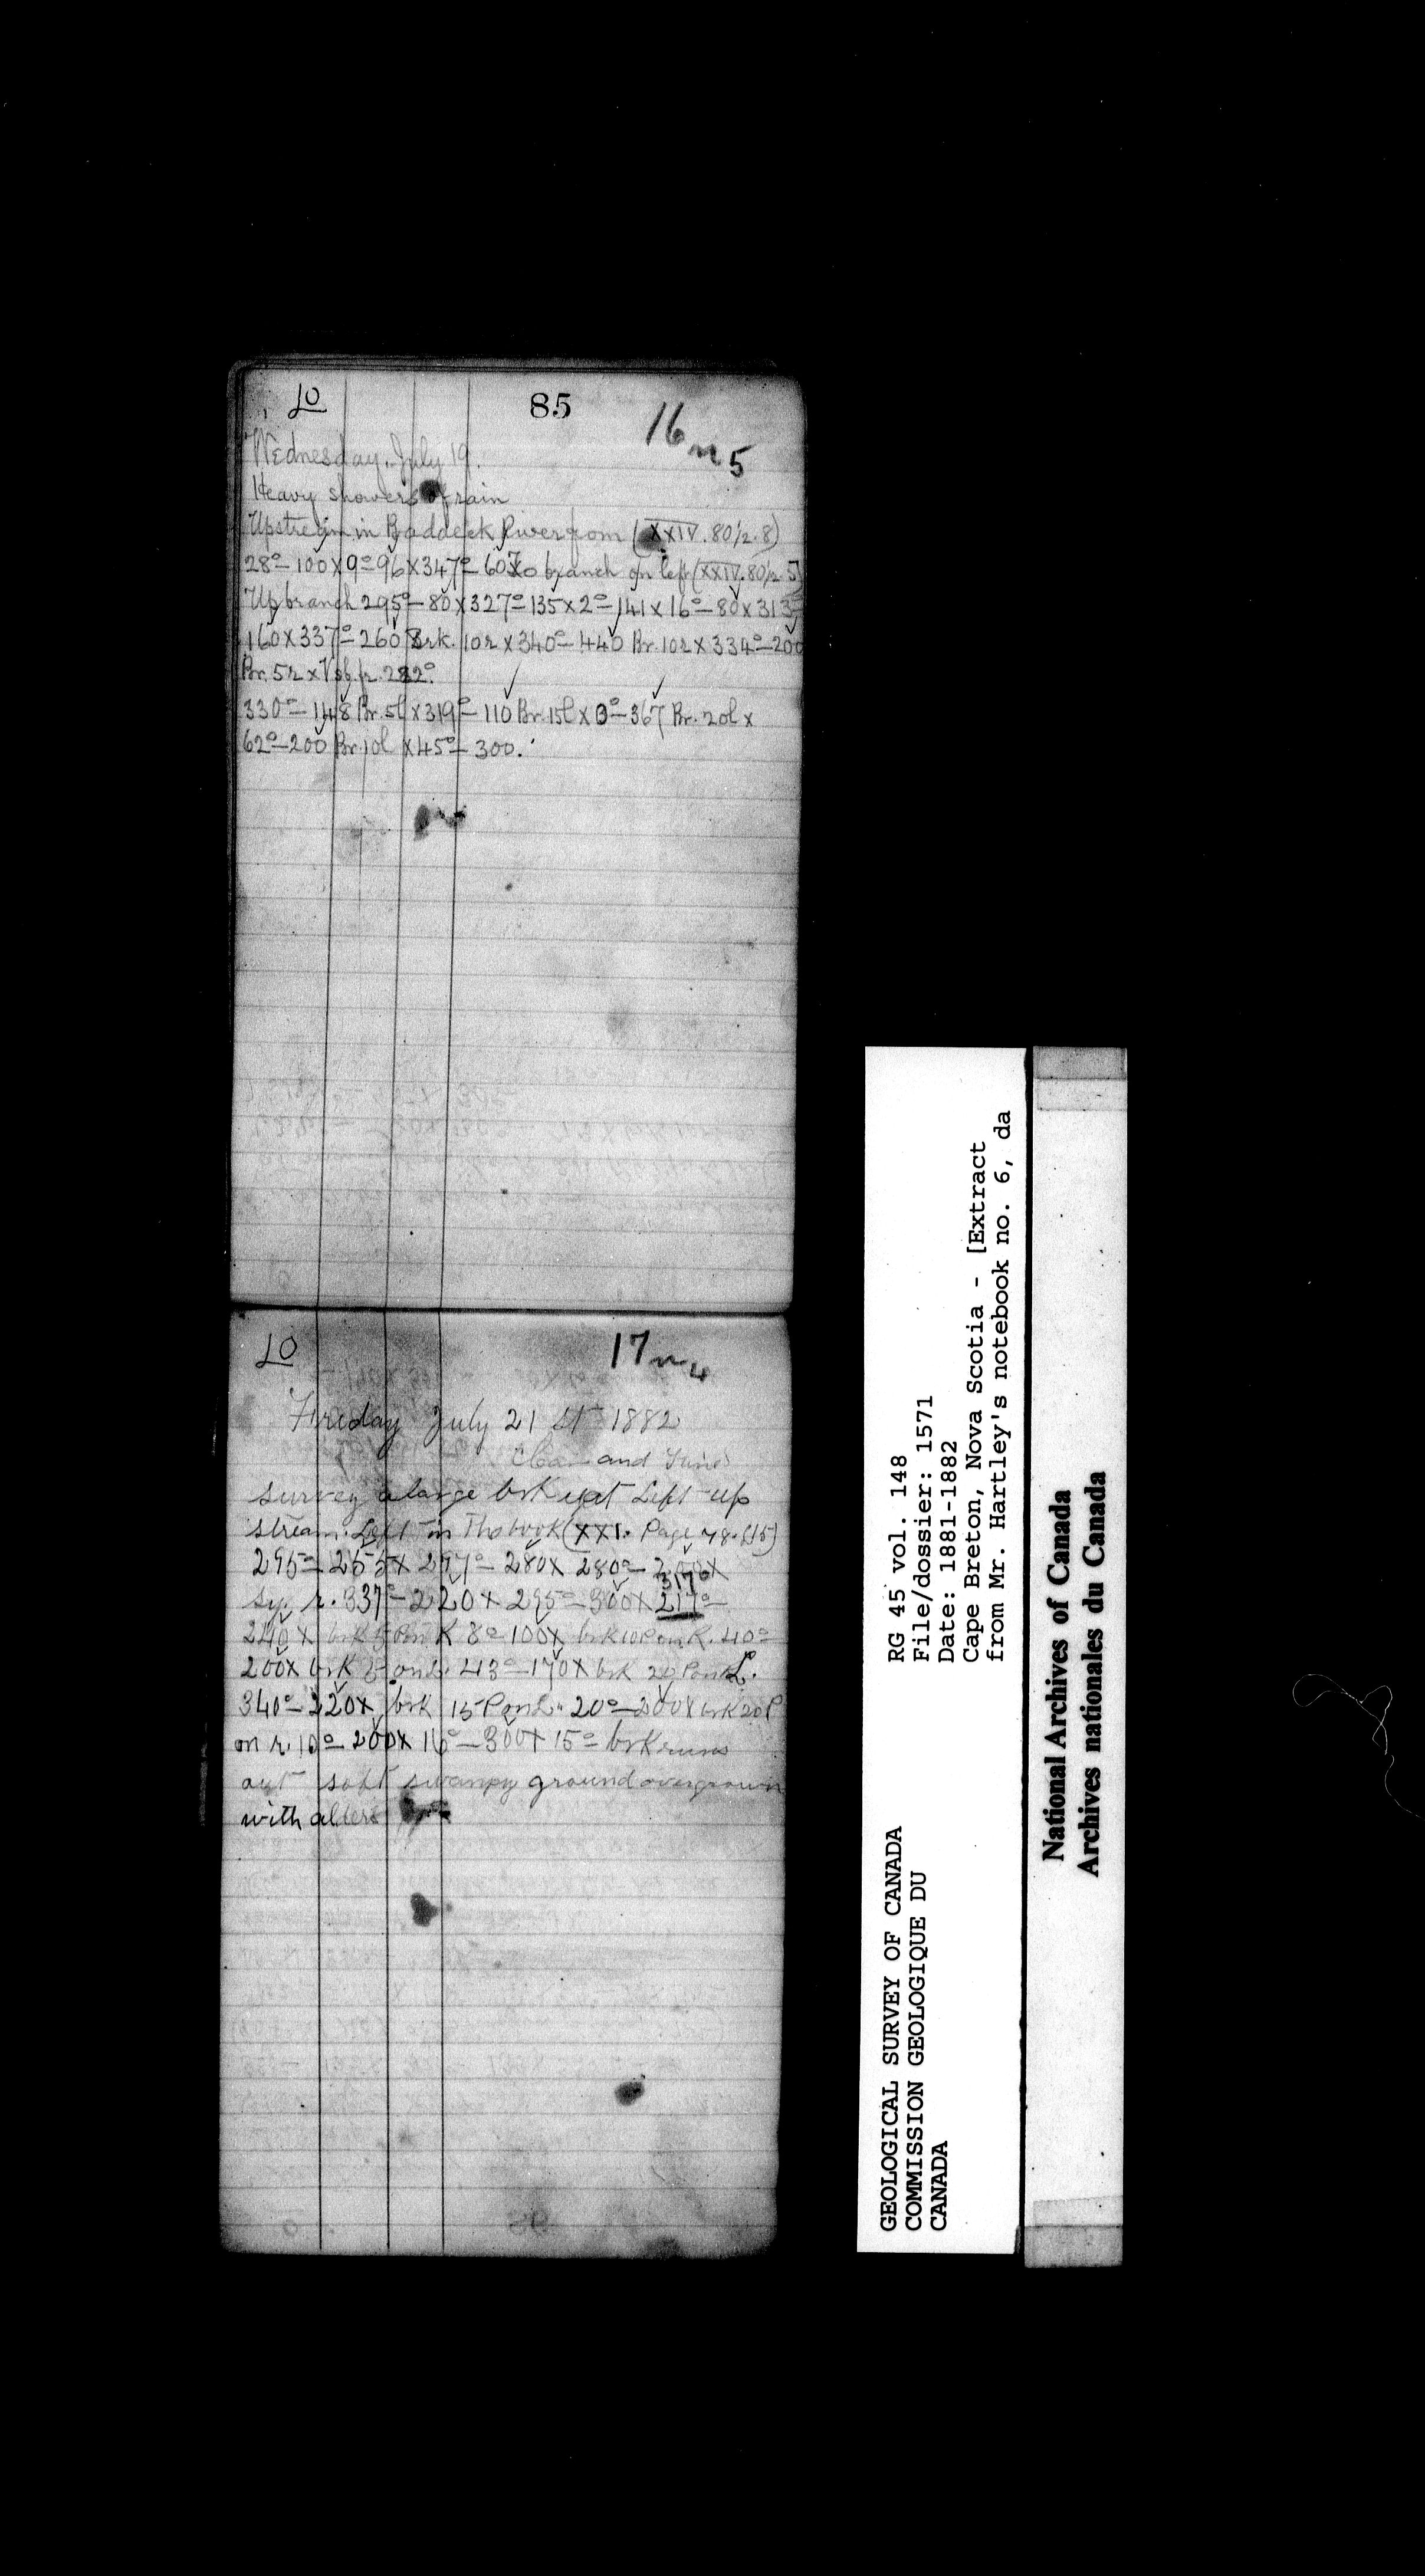 10 85 16 n 5
Wednesday. July 19.
Heavy showers of rain
Upstream in Baddeck River from (XXIV. 80 1/2. 8)
28°- 100 x 9°- 96 x 347°- 60 to branch on left (XXIV. 80 1/2 5)
Up branch 295°- 80 x 327°- 135 x 2°- 141 x 16°- 80 x 313°
160 x 337°- 260 Brk. 10r x 340°- 440 Br. 10r x 334°- 200
Br. 5r x 282°.
330°- 148 Br. 5l x 319°- 110 Br. 15l x 0°- 367 Br. 20l x
62°- 200 Br. 10l x 45°- 300.
10 17 n 4
Friday July 21 st 1882
Clear and
survey a large brk Left up
stream. Left in book (XXI. Page 78. 15)
295°- 255 x 297°- 280 x 280°- 200 x
317°
sy. r. 337°- 220 x 295°- 300 x 217°-
240 x brk 5 P on R 8°- 100 x brk 10 P on R. 40°-
200 x brk 5 on L. 43°- 170 x brk 20 P on L.
340°- 220 x brk 15 P on L. 20°- 200 x brk 20 P
on r. 10°- 200 x 16°- 300 x 15°- brk runs
out soft swampy ground overgrown
with alders
GEOLOGICAL SURVEY OF CANADA
COMMISSION GEOLOGIQUE DU
CANADA
RG 45 vol. 148
File/dossier: 1571
Date: 1881-1882
Cape Breton, Nova Scotia - [Extract
from Mr. Hartley's notebook no. 6, da
National Archives of Canada
Archives nationales du Canada